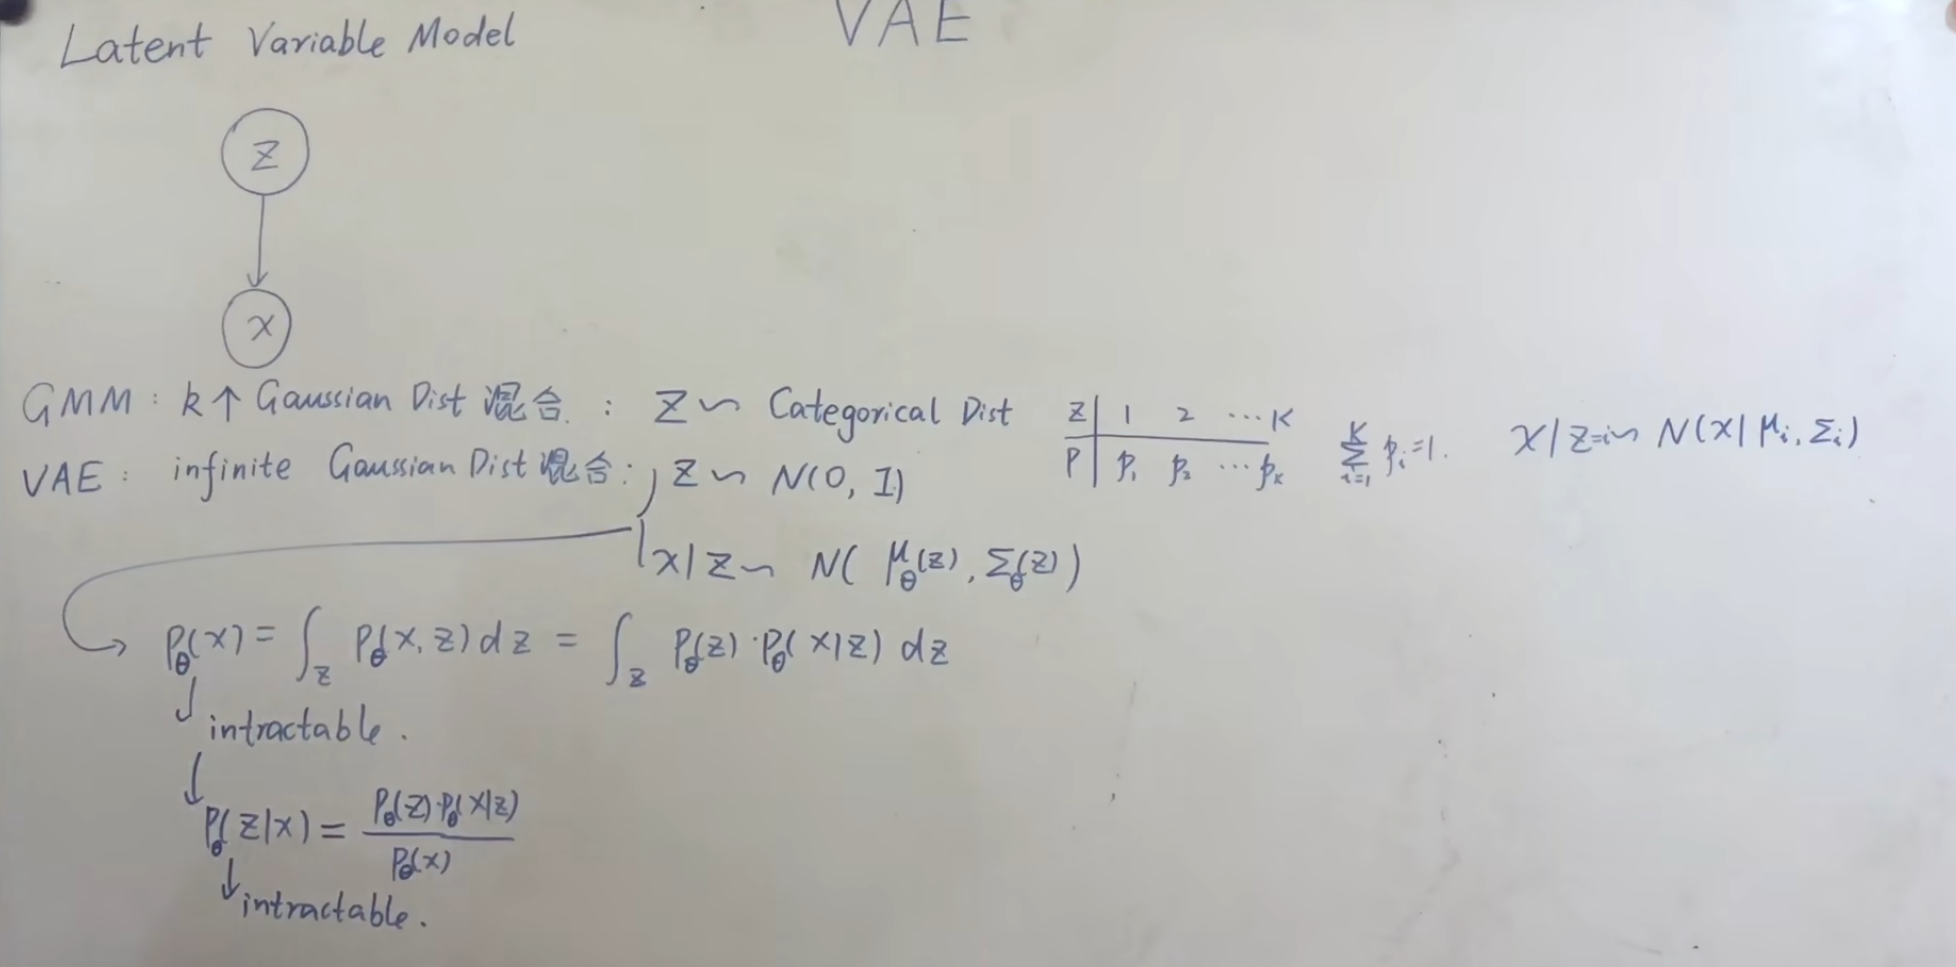 Latent Variable Model
VAE
Z
x
GMM: k个 Gaussian Dist 混合: Z ~ Categorical Dist
Z | 1 2 ... K
P | p₁ p₂ ... pₖ
∑ᵢ₌₁ᴷ pᵢ=1.
X|Z=i ~ N(X|μᵢ, Σᵢ)
VAE: infinite Gaussian Dist 混合: { Z ~ N(0, I)
x|Z ~ N( μ_θ(z), Σ_θ(z) )
P_θ(x) = ∫_z P_θ(x, z) dz = ∫_z P_θ(z)·P_θ(x|z) dz
↓ intractable.
↓ P_θ(z|x) = P_θ(z)·P_θ(x|z) / P_θ(x)
↓ intractable.